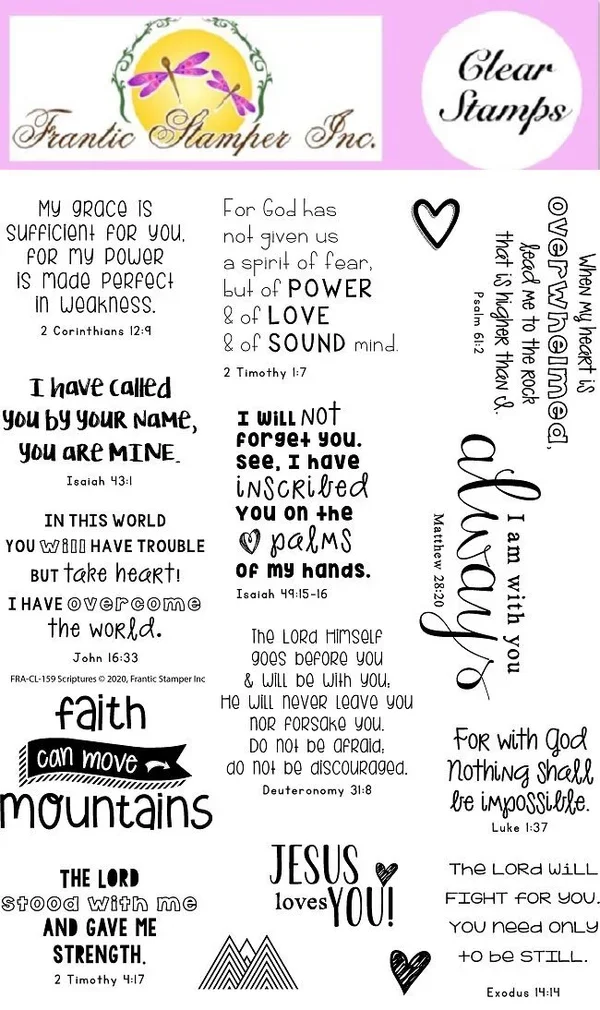 Frantic Stamper Inc.
Clear
Stamps
My grace is
sufficient for you,
for my power
is made perfect
in weakness.
2 Corinthians 12:9
For God has
not given us
a spirit of fear,
but of POWER
& of LOVE
& of SOUND mind.
2 Timothy 1:7
When my heart is
overwhelmed,
lead me to the rock
that is higher than I.
Psalm 61:2
I have called
you by your name,
you are MINE.
Isaiah 43:1
I will NOT
forget you.
See, I have
inscribed
you on the
palms
of my hands.
Isaiah 49:15-16
always
I am with you
Matthew 28:20
IN THIS WORLD
YOU will HAVE TROUBLE
BUT take heart!
I HAVE overcome
the world.
John 16:33
FRA-CL-159 Scriptures © 2020, Frantic Stamper Inc
The LORD Himself
goes before you
& will be with you;
He will never leave you
nor forsake you.
Do not be afraid;
do not be discouraged.
Deuteronomy 31:8
faith
can move
mountains
For with God
nothing shall
be impossible.
Luke 1:37
THE LORD
stood with me
AND GAVE ME
STRENGTH.
2 Timothy 4:17
JESUS
loves YOU!
The LORD will
FIGHT for you.
You need only
to be STILL.
Exodus 14:14